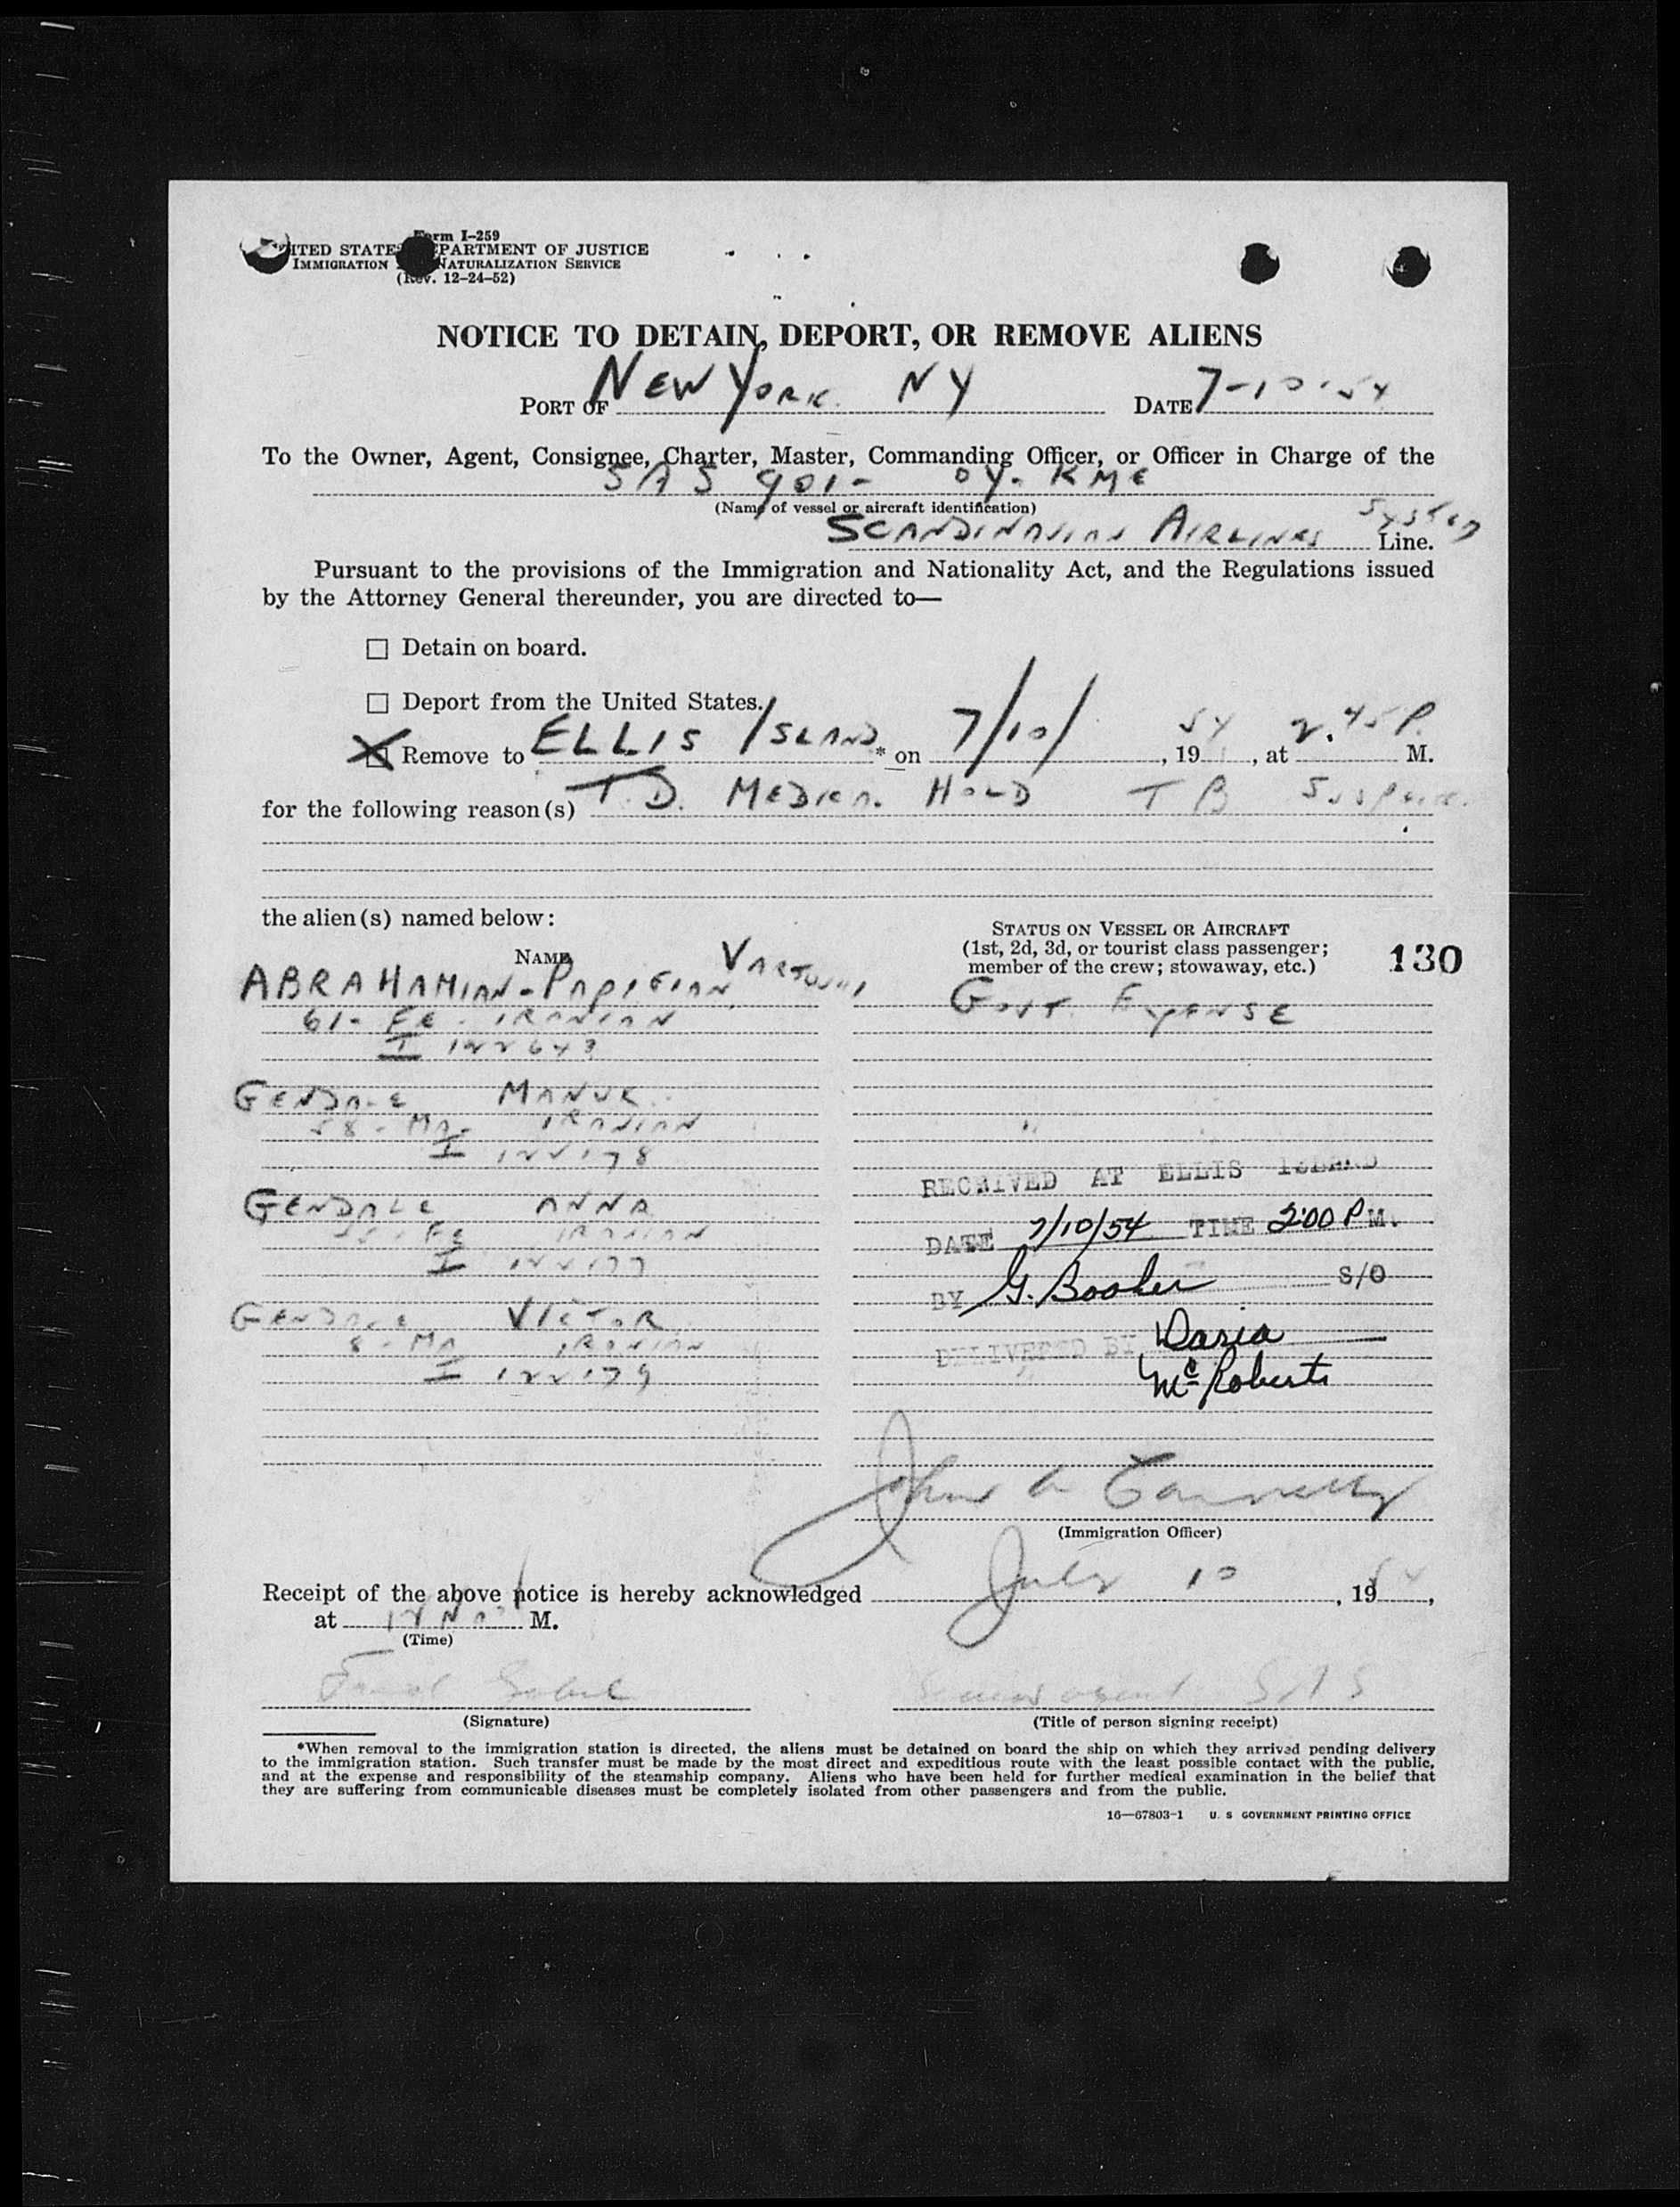 Form I-259
UNITED STATES DEPARTMENT OF JUSTICE
IMMIGRATION NATURALIZATION SERVICE
(Rev. 12-24-52)
NOTICE TO DETAIN, DEPORT, OR REMOVE ALIENS
PORT OF NEW YORK NY DATE 7-10-54
To the Owner, Agent, Consignee, Charter, Master, Commanding Officer, or Officer in Charge of the
SAS 901- OY-KME
(Name of vessel or aircraft identification)
SCANDINAVIAN AIRLINES SYSTEM Line.
Pursuant to the provisions of the Immigration and Nationality Act, and the Regulations issued
by the Attorney General thereunder, you are directed to—
☐ Detain on board.
☐ Deport from the United States.
☒ Remove to ELLIS ISLAND * on 7/10/, 1954, at 2.45 P. M.
for the following reason(s) T.D. MEDICAL HOLD TB SUSPECT.
the alien(s) named below:
NAME
STATUS ON VESSEL OR AIRCRAFT
(1st, 2d, 3d, or tourist class passenger;
member of the crew; stowaway, etc.)
130
ABRAHAMIAN-PAPIGIAN, GOVT. EXPENSE
61- FE- IRANIAN
I 122643
GENDALE MANUK
58- MA- IRANIAN "
I 122178
GENDALE ANNA
FE IRANIAN
I 122177
GENDALE VICTOR
8- MA IRANIAN
I 122179
RECEIVED AT ELLIS ISLAND
DATE 7/10/54 TIME 2:00 P M.
BY G. Booher S/O
DELIVERED BY Daria
McRoberts
John A Connelly
(Immigration Officer)
Receipt of the above notice is hereby acknowledged July 10, 1954,
at 12 M.
(Time)
SAS
(Signature) (Title of person signing receipt)
*When removal to the immigration station is directed, the aliens must be detained on board the ship on which they arrived pending delivery
to the immigration station. Such transfer must be made by the most direct and expeditious route with the least possible contact with the public,
and at the expense and responsibility of the steamship company. Aliens who have been held for further medical examination in the belief that
they are suffering from communicable diseases must be completely isolated from other passengers and from the public.
16—67803-1 U. S GOVERNMENT PRINTING OFFICE